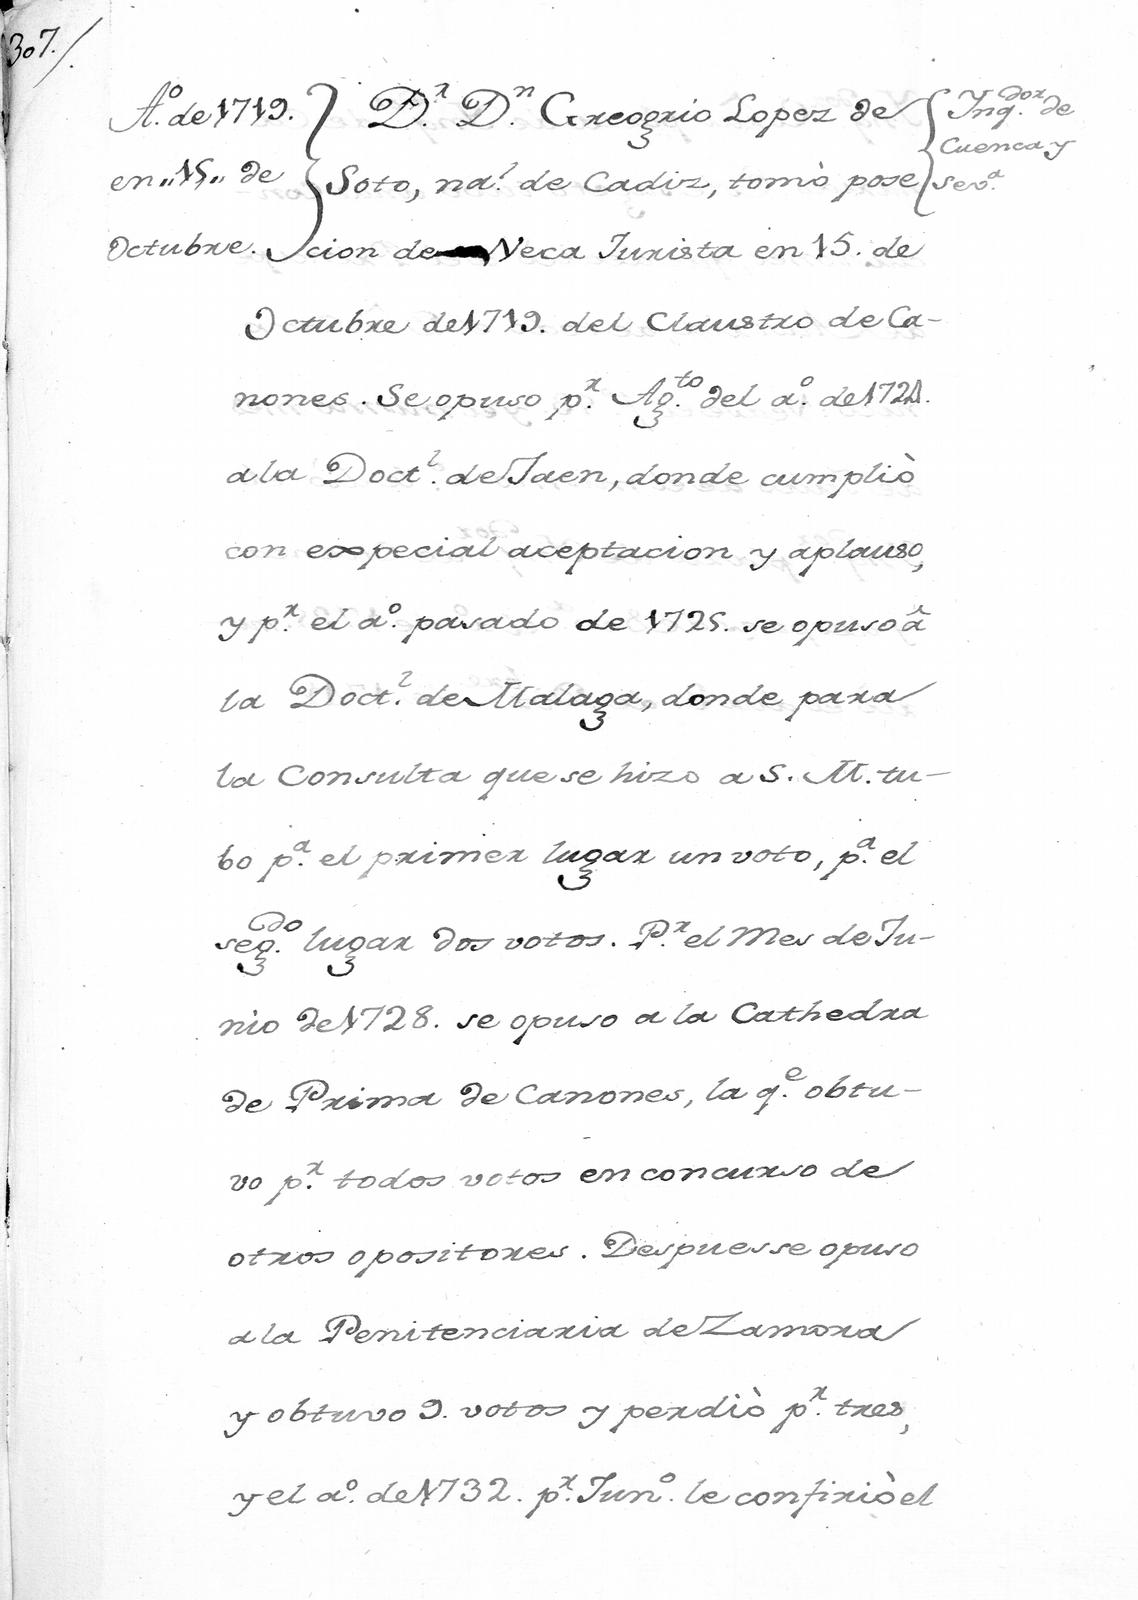 307./
A.º de 1719.
en „15„ de
Octubre.
D.r D.n Gregorio Lopez de
Soto, na.l de Cadiz, tomò pose
cion de Veca Jurista en 15. de
Octubre de 1719. del Claustro de Ca-
nones. Se opuso p.r Ag.to del a.º de
a la Doct.l de Jaen, donde cumpliò
con expecial aceptacion y aplauso,
y p.r el a.º pasado de 1725. se opuso â
la Doct.l de Malaga, donde para
la Consulta que se hizo a S. M. tu-
bo p.a el primer lugar un voto, p.a el
seg.do lugar dos votos. P.r el Mes de Ju-
nio de 1728. se opuso a la Cathedra
de Prima de Canones, la q.e obtu-
vo p.r todos votos en concurso de
otros opositores. Despues se opuso
a la Penitenciaria de Zamora
y obtuvo 9. votos y perdiò p.r tres,
y el a.º de 1732. p.r Jun.º le confiriò el
Inq.dor de
Cuenca y
Sev.a